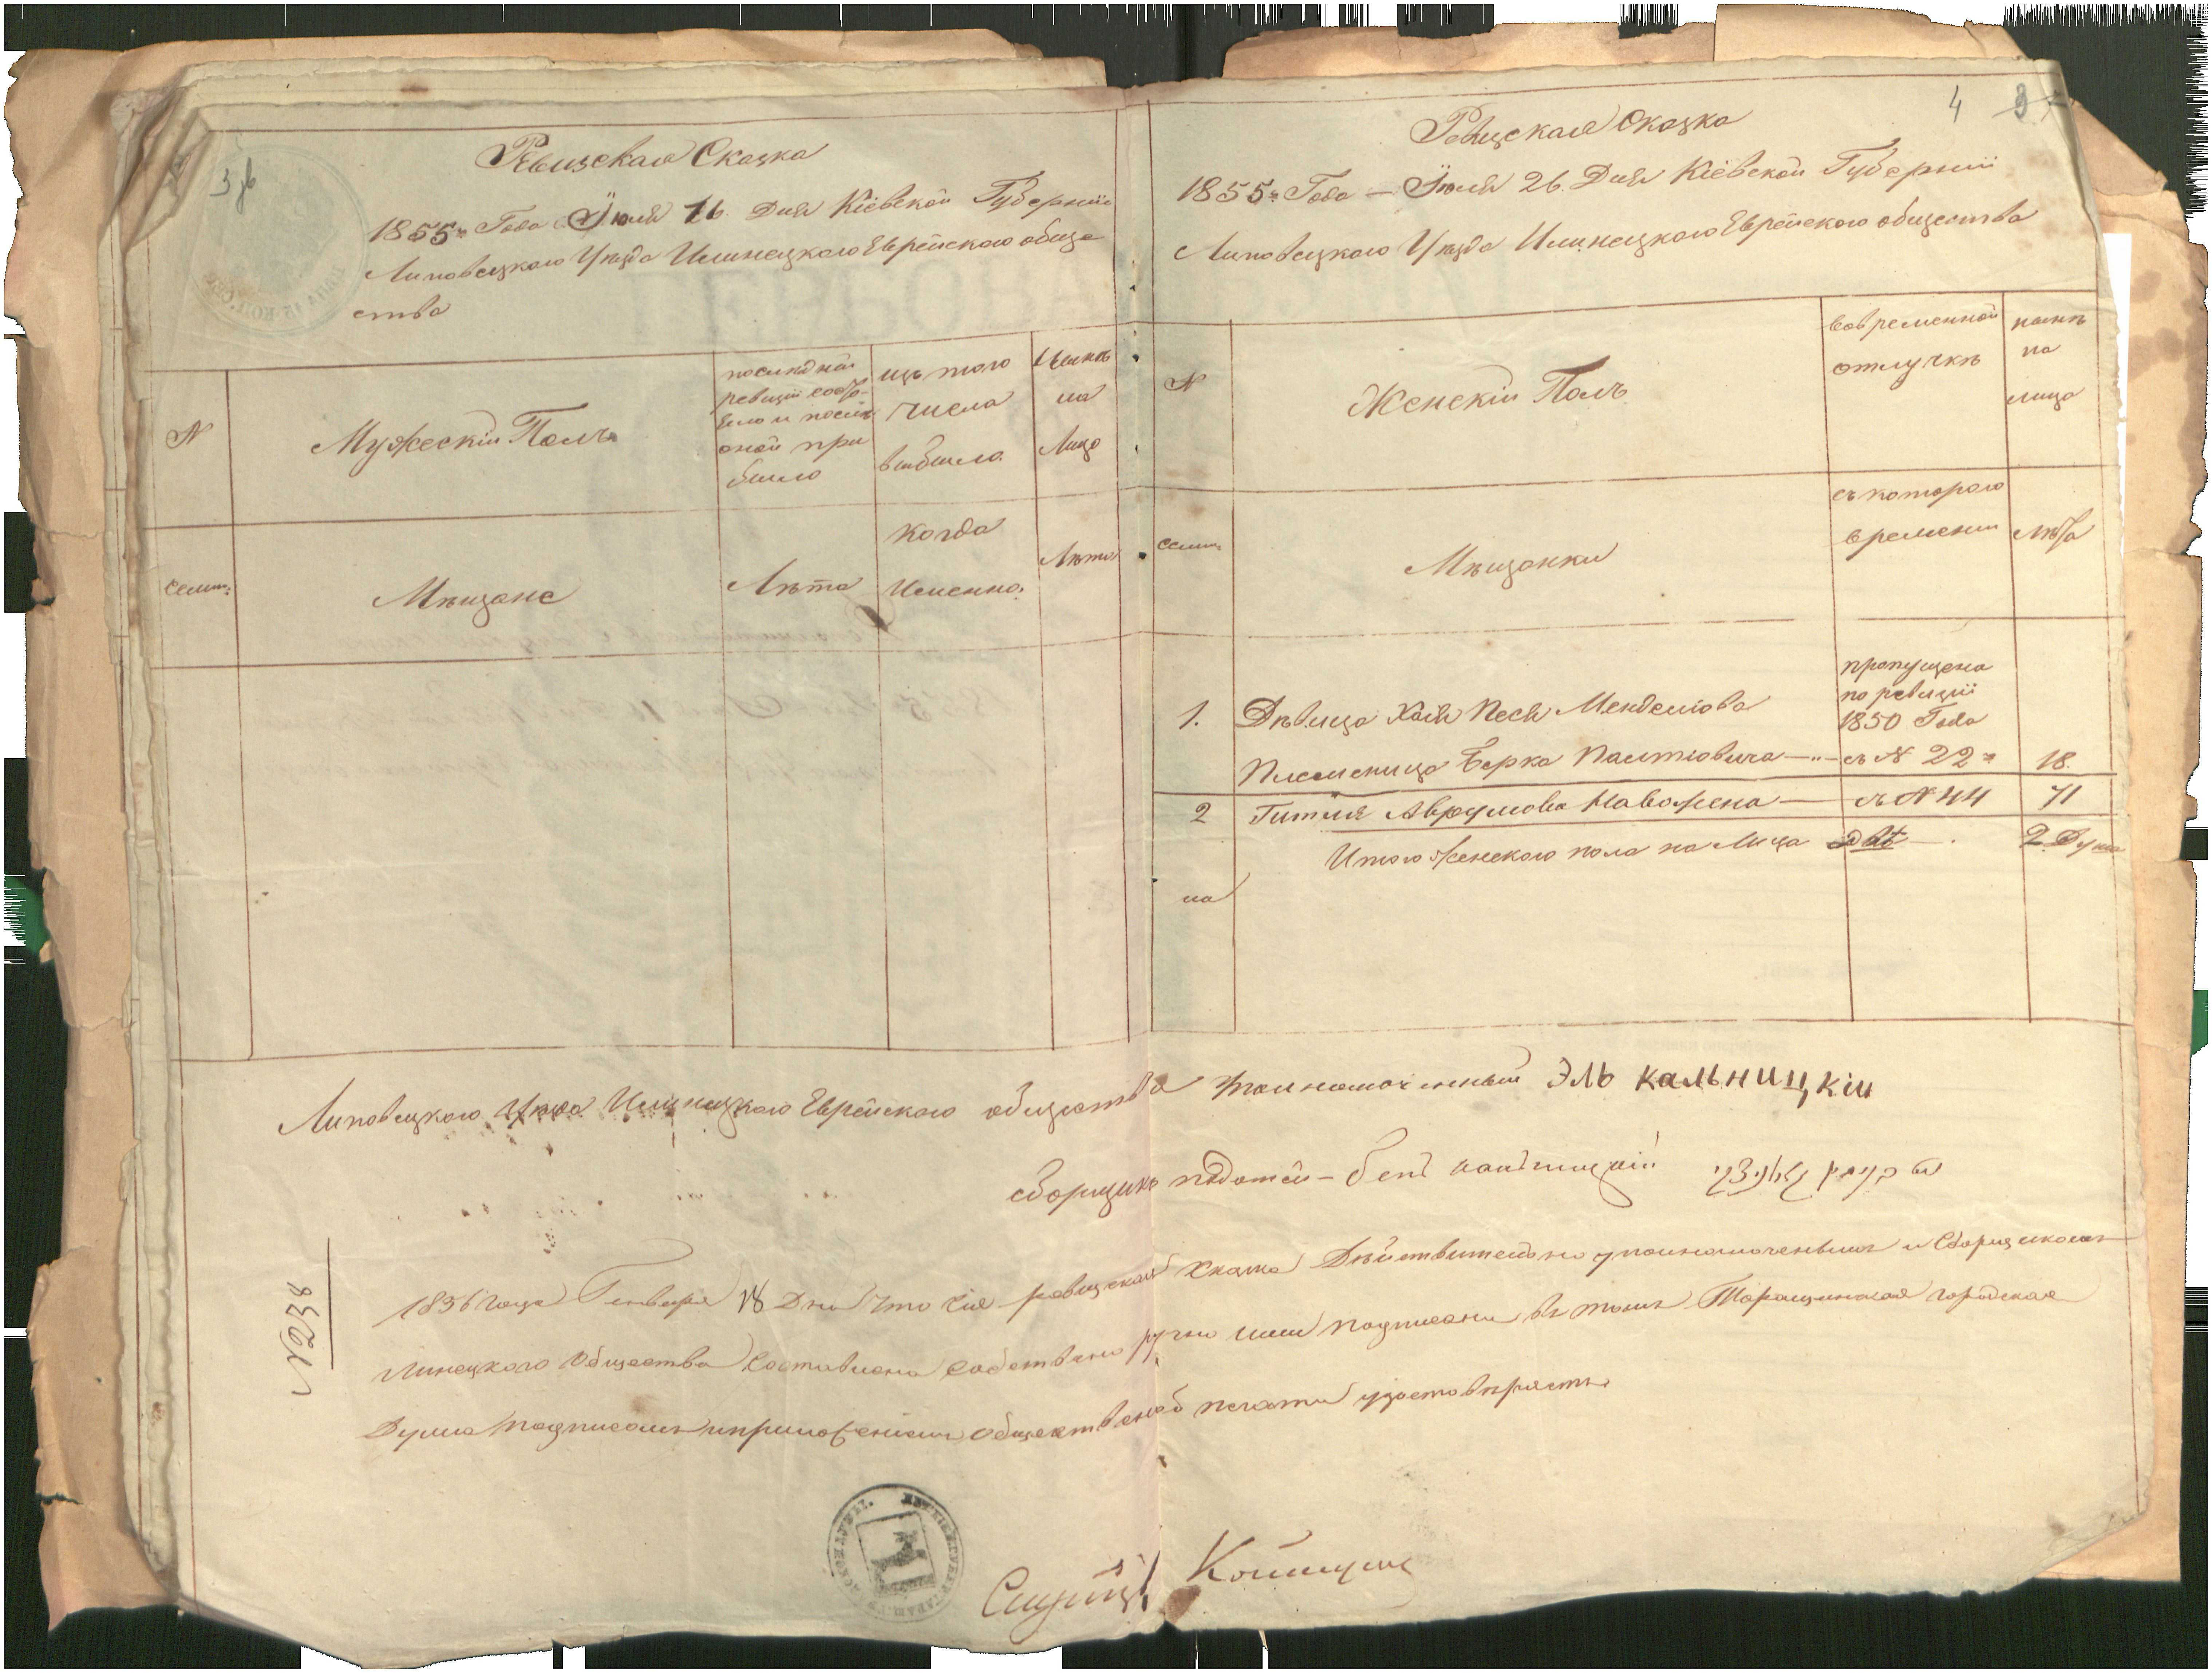 3 зв
Ревизская Сказка
1855го Года Июля 26. Дня Кіевской Губерніи
Липовецкаго Уѣзда Илинецкаго Еврейскаго обще
ства
N
Мужескій Полъ
последной
ревизіи состо-
яло и после
оной при
было
изъ того
числа
выбыло
Ныне
на
Лицо
семи:
Мѣщане
Лѣта
когда
Именно.
Лѣта
4
Ревизская Сказка
1855го Года — Июля 26. Дня Кіевской Губерніи
Липовецкаго Уѣзда Илинецкаго Еврейскаго общества
N
Женскій Полъ
вовременной
отлучкѣ
нынѣ
на
лицо
семи:
Мѣщанки
съ котораго
времени
лѣта
пропущена
по ревизіи
1850 Года
1. Дѣвица Хая Песя Менделіова
Племеница Берка Палтіовича —"— съ N 22го 18.
2 Гитля Аврумова Наволена — съ N 44 71
Итого женскаго пола на Лицо двѣ — . 2 Душа
на
Липовецкаго Уѣзда Илинецкаго Еврейскаго общества уполномоченный Эль кальницкій
сборщикъ податей —
1856 года Генваря 18 Дня что сія ревизская Сказка Дѣйствительно уполномоченымъ и Сборщикомъ
линецкого Общества Составлена собственно ручно ими подписана въ томъ Таращинская городская
Дума подписомъ и приложеніемъ общественой печати удостовѣряетъ